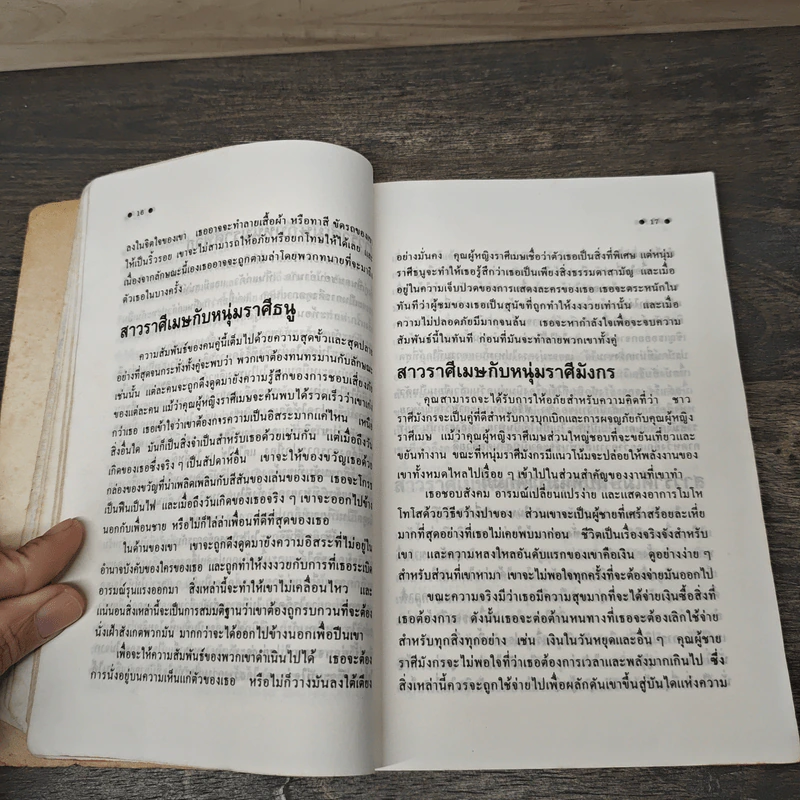 ● 16 ●
ลงในจิตใจของเขา เธออาจจะทำลายเสื้อผ้า หรือทาสี ขัดรถของ
ให้เป็นริ้วรอย เขาจะไม่สามารถให้อภัยหรือยกโทษให้ได้เลย และ
เนื่องจากลักษณะนี้เองเธออาจจะถูกตามล่าโดยพวกทนายที่จะมา
ตัวเธอในบางครั้ง
สาวราศีเมษกับหนุ่มราศีธนู
ความสัมพันธ์ของคนคู่นี้เต็มไปด้วยความสุดขั้วและสุดปลาย
อย่างที่สุดจนกระทั่งทั้งคู่จะพบว่า พวกเขาต้องทนทรมานกับลักษณะ
เช่นนั้น แต่ละคนจะถูกดึงดูดมายังความรู้สึกของการชอบเสี่ยงภัย
ของแต่ละคน แม้ว่าคุณผู้หญิงราศีเมษจะค้นพบได้รวดเร็วว่าเขาแก่
กว่าเธอ เธอเข้าใจว่าเขาต้องการความเป็นอิสระมากแค่ไหน เหนือ
สิ่งอื่นใด มันก็เป็นสิ่งจำเป็นสำหรับเธอด้วยเช่นกัน แต่เมื่อถึงวัน
เกิดของเธอซึ่งจริง ๆ เป็นสัปดาห์อื่น เขาจะให้ของขวัญเธอด้วย
กล่องของขวัญที่น่าเพลิดเพลินกับสีสันของเล่นของเธอ เธอจะโกรธ
เป็นฟืนเป็นไฟ และเมื่อถึงวันเกิดของเธอจริง ๆ เขาจะออกไปข้าง
นอกกับเพื่อนชาย หรือไม่ก็ไล่ล่าเพื่อนที่ดีที่สุดของเธอ
ในด้านของเขา เขาจะถูกดึงดูดมายังความอิสระที่ไม่อยู่ใน
อำนาจบังคับของใครของเธอ และถูกทำให้งงงวยกับการที่เธอระเบิด
อารมณ์รุนแรงออกมา สิ่งเหล่านี้จะทำให้เขาไม่เคลื่อนไหว และ
แน่นอนสิ่งเหล่านี้จะเป็นการสมมติฐานว่าเขาต้องถูกรบกวนที่จะต้อง
นั่งเฝ้าสังเกตพวกมัน มากกว่าจะได้ออกไปข้างนอกเพื่อปีนเขา
เพื่อจะให้ความสัมพันธ์ของพวกเขาดำเนินไปได้ เธอจะต้อง
การนั่งอยู่บนความเห็นแก่ตัวของเธอ หรือไม่ก็วางมันลงใต้เตียง
● 17 ●
อย่างมั่นคง คุณผู้หญิงราศีเมษเชื่อว่าตัวเธอเป็นสิ่งที่พิเศษ แต่หนุ่ม
ราศีธนูจะทำให้เธอรู้สึกว่าเธอเป็นเพียงสิ่งธรรมดาสามัญ และเมื่อ
อยู่ในความเจ็บปวดของการแสดงละครของเธอ เธอจะตระหนักใน
ทันทีว่าผู้ชมของเธอเป็นสุนัขที่ถูกทำให้งงงวยเท่านั้น และเมื่อ
ความไม่ปลอดภัยมีมากจนล้น เธอจะหากำลังใจเพื่อจะจบความ
สัมพันธ์นี้ในทันที ก่อนที่มันจะทำลายพวกเขาทั้งคู่
สาวราศีเมษกับหนุ่มราศีมังกร
คุณสามารถจะได้รับการให้อภัยสำหรับความคิดที่ว่า ชาว
ราศีมังกรจะเป็นคู่ที่ดีสำหรับการบุกเบิกและการผจญภัยกับคุณผู้หญิง
ราศีเมษ แม้ว่าคุณผู้หญิงราศีเมษส่วนใหญ่ชอบที่จะขยันเที่ยวและ
ขยันทำงาน ขณะที่หนุ่มราศีมังกรมีแนวโน้มจะปล่อยให้พลังงานของ
เขาทั้งหมดไหลไปเรื่อย ๆ เข้าไปในส่วนสำคัญของงานที่เขาทำ
เธอชอบสังคม อารมณ์เปลี่ยนแปรง่าย และแสดงอาการโมโห
โทโสด้วยวิธีขว้างปาของ ส่วนเขาจะเป็นผู้ชายที่เศร้าสร้อยละเหี่ย
มากที่สุดอย่างที่เธอไม่เคยพบมาก่อน ชีวิตเป็นเรื่องจริงจังสำหรับ
เขา และความหลงใหลอันดับแรกของเขาคือเงิน ดูอย่างง่าย ๆ
สำหรับส่วนที่เขาหามา เขาจะไม่พอใจทุกครั้งที่จะต้องจ่ายมันออกไป
ขณะความจริงมีว่าเธอมีความสุขมากที่จะได้จ่ายเงินซื้อสิ่งที่
เธอต้องการ ดังนั้นเธอจะต่อต้านหนทางที่เธอจะต้องเลิกใช้จ่าย
สำหรับทุกสิ่งทุกอย่าง เช่น เงินในวันหยุดและอื่น ๆ คุณผู้ชาย
ราศีมังกรจะไม่พอใจที่ว่าเธอต้องการเวลาและพลังมากเกินไป ซึ่ง
สิ่งเหล่านี้ควรจะถูกใช้จ่ายไปเพื่อผลักดันเขาขึ้นสู่บันไดแห่งความ